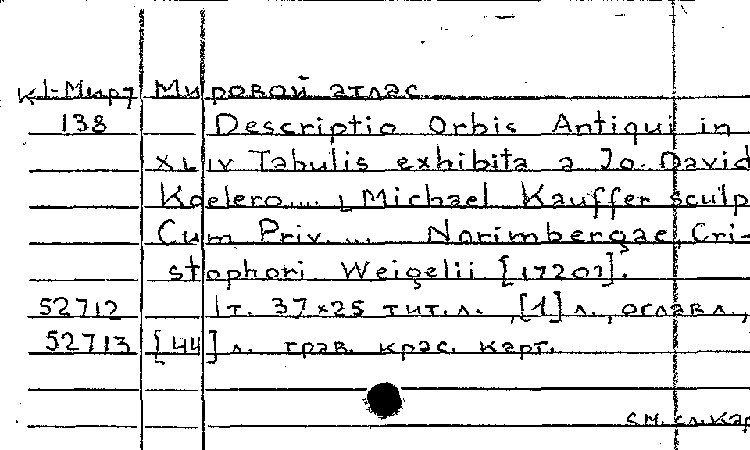 К1-Мирт Мировой атлас
138 Descriptio Orbis Antiqui in
XLIV Tabulis exhibita a Jo. David
Koelero.... Michael Kauffer sculp
Cum Priv. ... Norimbergae, Cri-
stophori Weigelii [1720?].
52712 1т. 37×25 тит.л., [1] л., оглавл.,
52713 [44] л. грав. крас. карт.
см. сл. кар